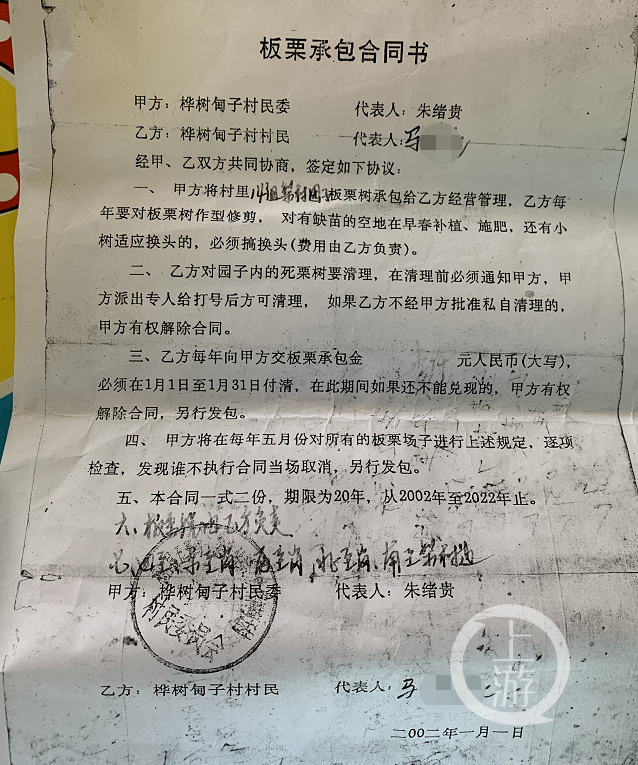 板栗承包合同书
甲方：桦树甸子村民委 代表人：朱绪贵
乙方：桦树甸子村村民 代表人：马
经甲、乙双方共同协商，签定如下协议：
一、甲方将村里板栗树承包给乙方经营管理，乙方每
年要对板栗树作型修剪， 对有缺苗的空地在早春补植、施肥，还有小
树适应换头的，必须搞换头(费用由乙方负责)。
二、乙方对园子内的死栗树要清理，在清理前必须通知甲方，甲
方派出专人给打号后方可清理， 如果乙方不经甲方批准私自清理的，
甲方有权解除合同。
三、乙方每年向甲方交板栗承包金 元人民币(大写)，
必须在1月1日至1月31日付清，在此期间如果还不能兑现的，甲方有权
解除合同，另行发包。
四、 甲方将在每年五月份对所有的板栗场子进行上述规定，逐项
检查，发现谁不执行合同当场取消，另行发包。
五、本合同一式二份，期限为20年，从2002年至2022年止。
六、乙方负责
甲方：桦树甸子村民委 代表人：朱绪贵
村民委员会
乙方：桦树甸子村村民 代表人：马
上游
二〇〇二年一月一日